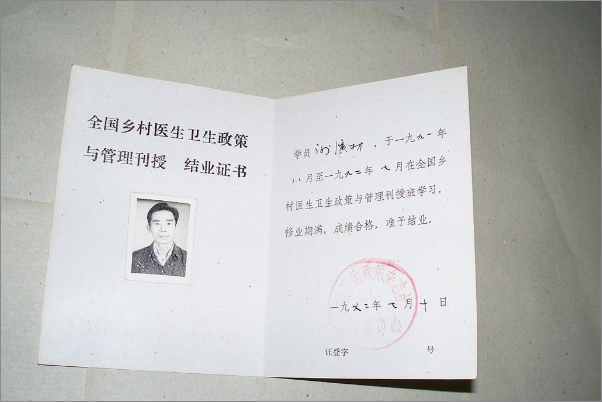 全国乡村医生卫生政策
与管理刊授 结业证书
学员 ，于一九九一年
八月至一九九二年七月在全国乡
村医生卫生政策与管理刊授班学习，
修业期满，成绩合格，准予结业。
卫生政策杂志
中心
一九九二年七月十日
证登字 号